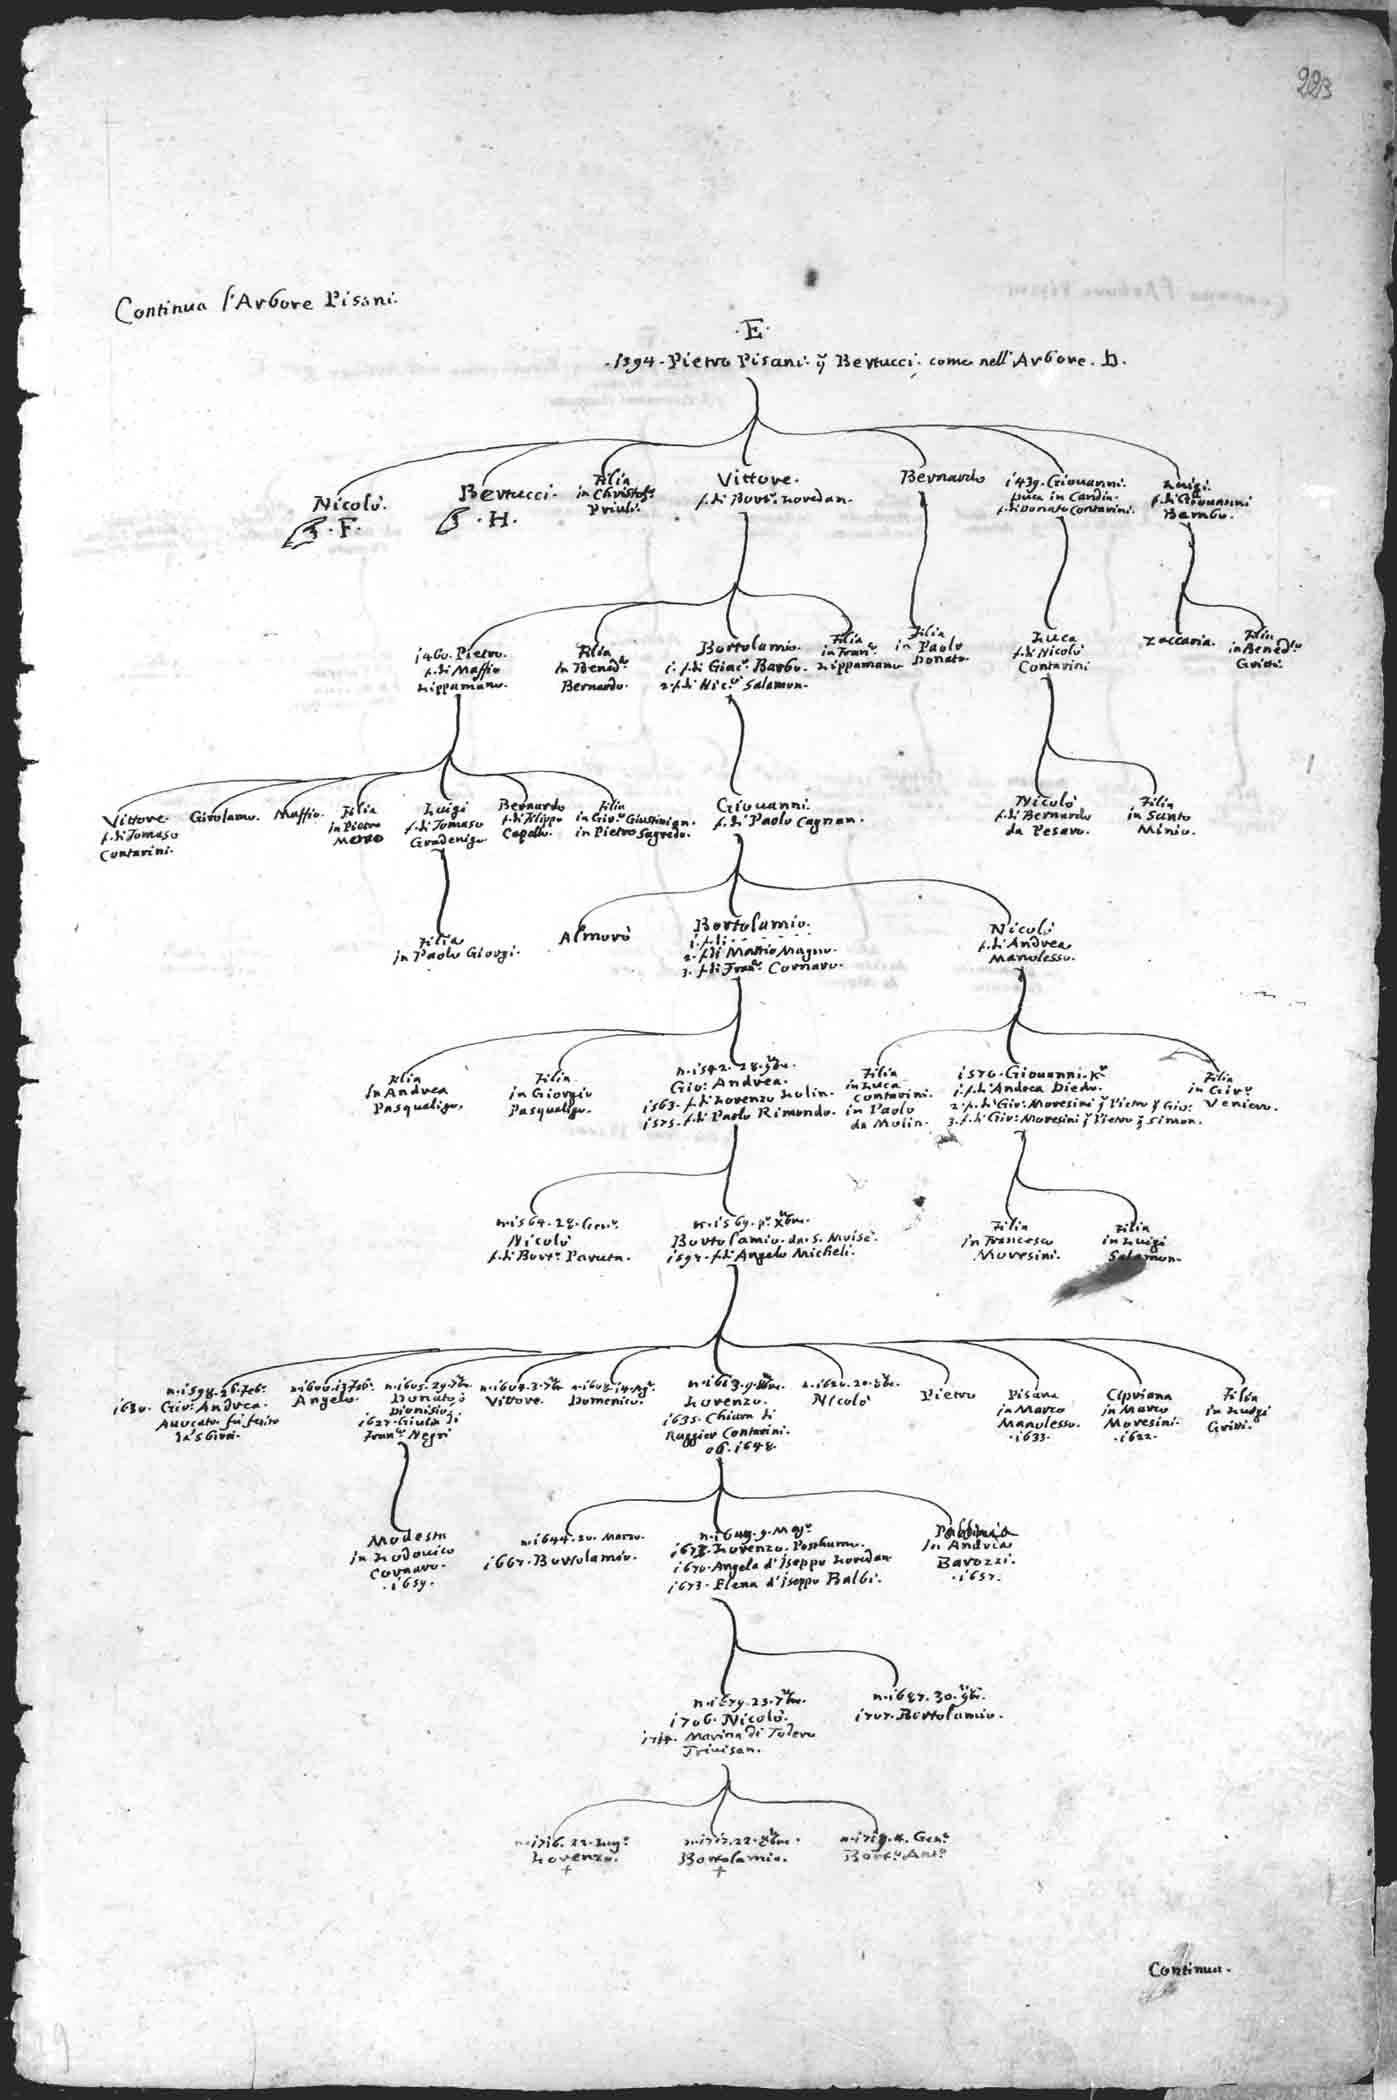 223
Continua l'Arbore Pisani.
.E.
1394. Pietro Pisani. q̃ Bertucci. come nell'Arbore. D.
Nicolò.
.F.
Bertucci.
.H.
Filia
in Christof.º
Priuli.
Vittore.
f. di Bort.º Loredan.
Bernardo
1439. Giovanni.
Duca in Candia.
f. di Donato Contarini.
Luigi.
f. di Giovanni
Bembo.
1460. Pietro.
f. di Maffio
Lippamano.
Filia
in Bened.º
Bernardo.
Bortolamio.
1. f. di Giac.º Barbo.
2. f. di Nic.º Salamon.
Filia
in Fran.º
Lippamano
Filia
in Paolo
Donato.
Luca
f. di Nicolò
Contarini
Zaccaria.
Filia
in Bened.º
Gritti.
Vittore
f. di Tomaso
Contarini.
Girolamo.
Maffio.
Filia
in Pietro
Moro
Luigi
f. di Tomaso
Gradenigo
Bernardo
f. di Filippo
Capello.
Filia
in Gio.º Giustinian.
in Pietro Sagredo.
Giovanni.
f. di Paolo Cagnan.
Nicolò
f. di Bernardo
da Pesaro.
Filia
in Santo
Minio.
Filia
in Paolo Giorgi.
Almorò
Bortolamio.
1. f. di . . . . .
2. f. di Mattio Magno.
3. f. di Fran.º Cornaro.
Nicolò
f. di Andrea
Manolesso.
Filia
in Andrea
Pasqualigo.
Filia
in Giorgio
Pasqualigo.
n. 1542. 28. 9bre.
Gio: Andrea.
1563. f. di Lorenzo Lolin.
1575. f. di Paolo Rimondo.
Filia
in Luca
Contarini.
in Paolo
da Molin.
1570. Giovanni. K.r
1. f. di Andrea Diedo.
2. f. di Gio: Moresini q̃ Pietro q̃ Gio:
3. f. di Gio: Moresini q̃ Pietro q̃ Simon.
Filia
in Gio.º
Venier.
n. 1564. 28. Gen.º
Nicolò
f. di Bort.º Paruta.
n. 1569. p.º Xbre.
Bortolamio. da S. Moisè.
1597. f. di Angelo Micheli.
Filia
in Francesco
Moresini.
Filia
in Luigi
Salamon.
n. 1598. 26. Feb.º
1630. Gio: Andrea.
Auuocato. fù ferito
n. 1600. 13. Feb.º
Angelo.
n. 1605. 29. 7bre.
Donato, ò
Dionisio.
1627. Giulia di
Fran.º Negri
n. 1604. 3. 7bre
Vittore.
n. 1608. 14. Ag.º
Domenico.
n. 1613. 9. 8bre.
Lorenzo.
1635. Chiara di
Ruggier Contarini.
ob. 1648.
n. 1620. 20. 8bre.
Nicolò
Pietro
Pisana
in Marco
Manolesso.
.1633.
Cipriana
in Marco
Moresini.
.1622.
Filia
in Luigi
Gritti.
Modesta
in Lodovico
Cornaro.
.1659.
n. 1644. 20. Marzo.
1667. Bortolamio.
n. 1649. 9. Mag.º
1673. Lorenzo. Posthumo.
1670. Angela d'Iseppo Loredan
1673. Elena d'Iseppo Balbi.
in Andrea
Barozzi.
.1657.
n. 1679. 23. 7bre.
1706. Nicolò.
1714. Marina di Todero
Trivisan.
n. 1687. 30. 9bre.
1707. Bortolamio.
n. 1716. 22. Lug.º
Lorenzo.
+
n. 1717. 22. 8bre.
Bortolamio.
+
n. 1719. 4. Gen.º
Bort.º Ant.º
Continua.